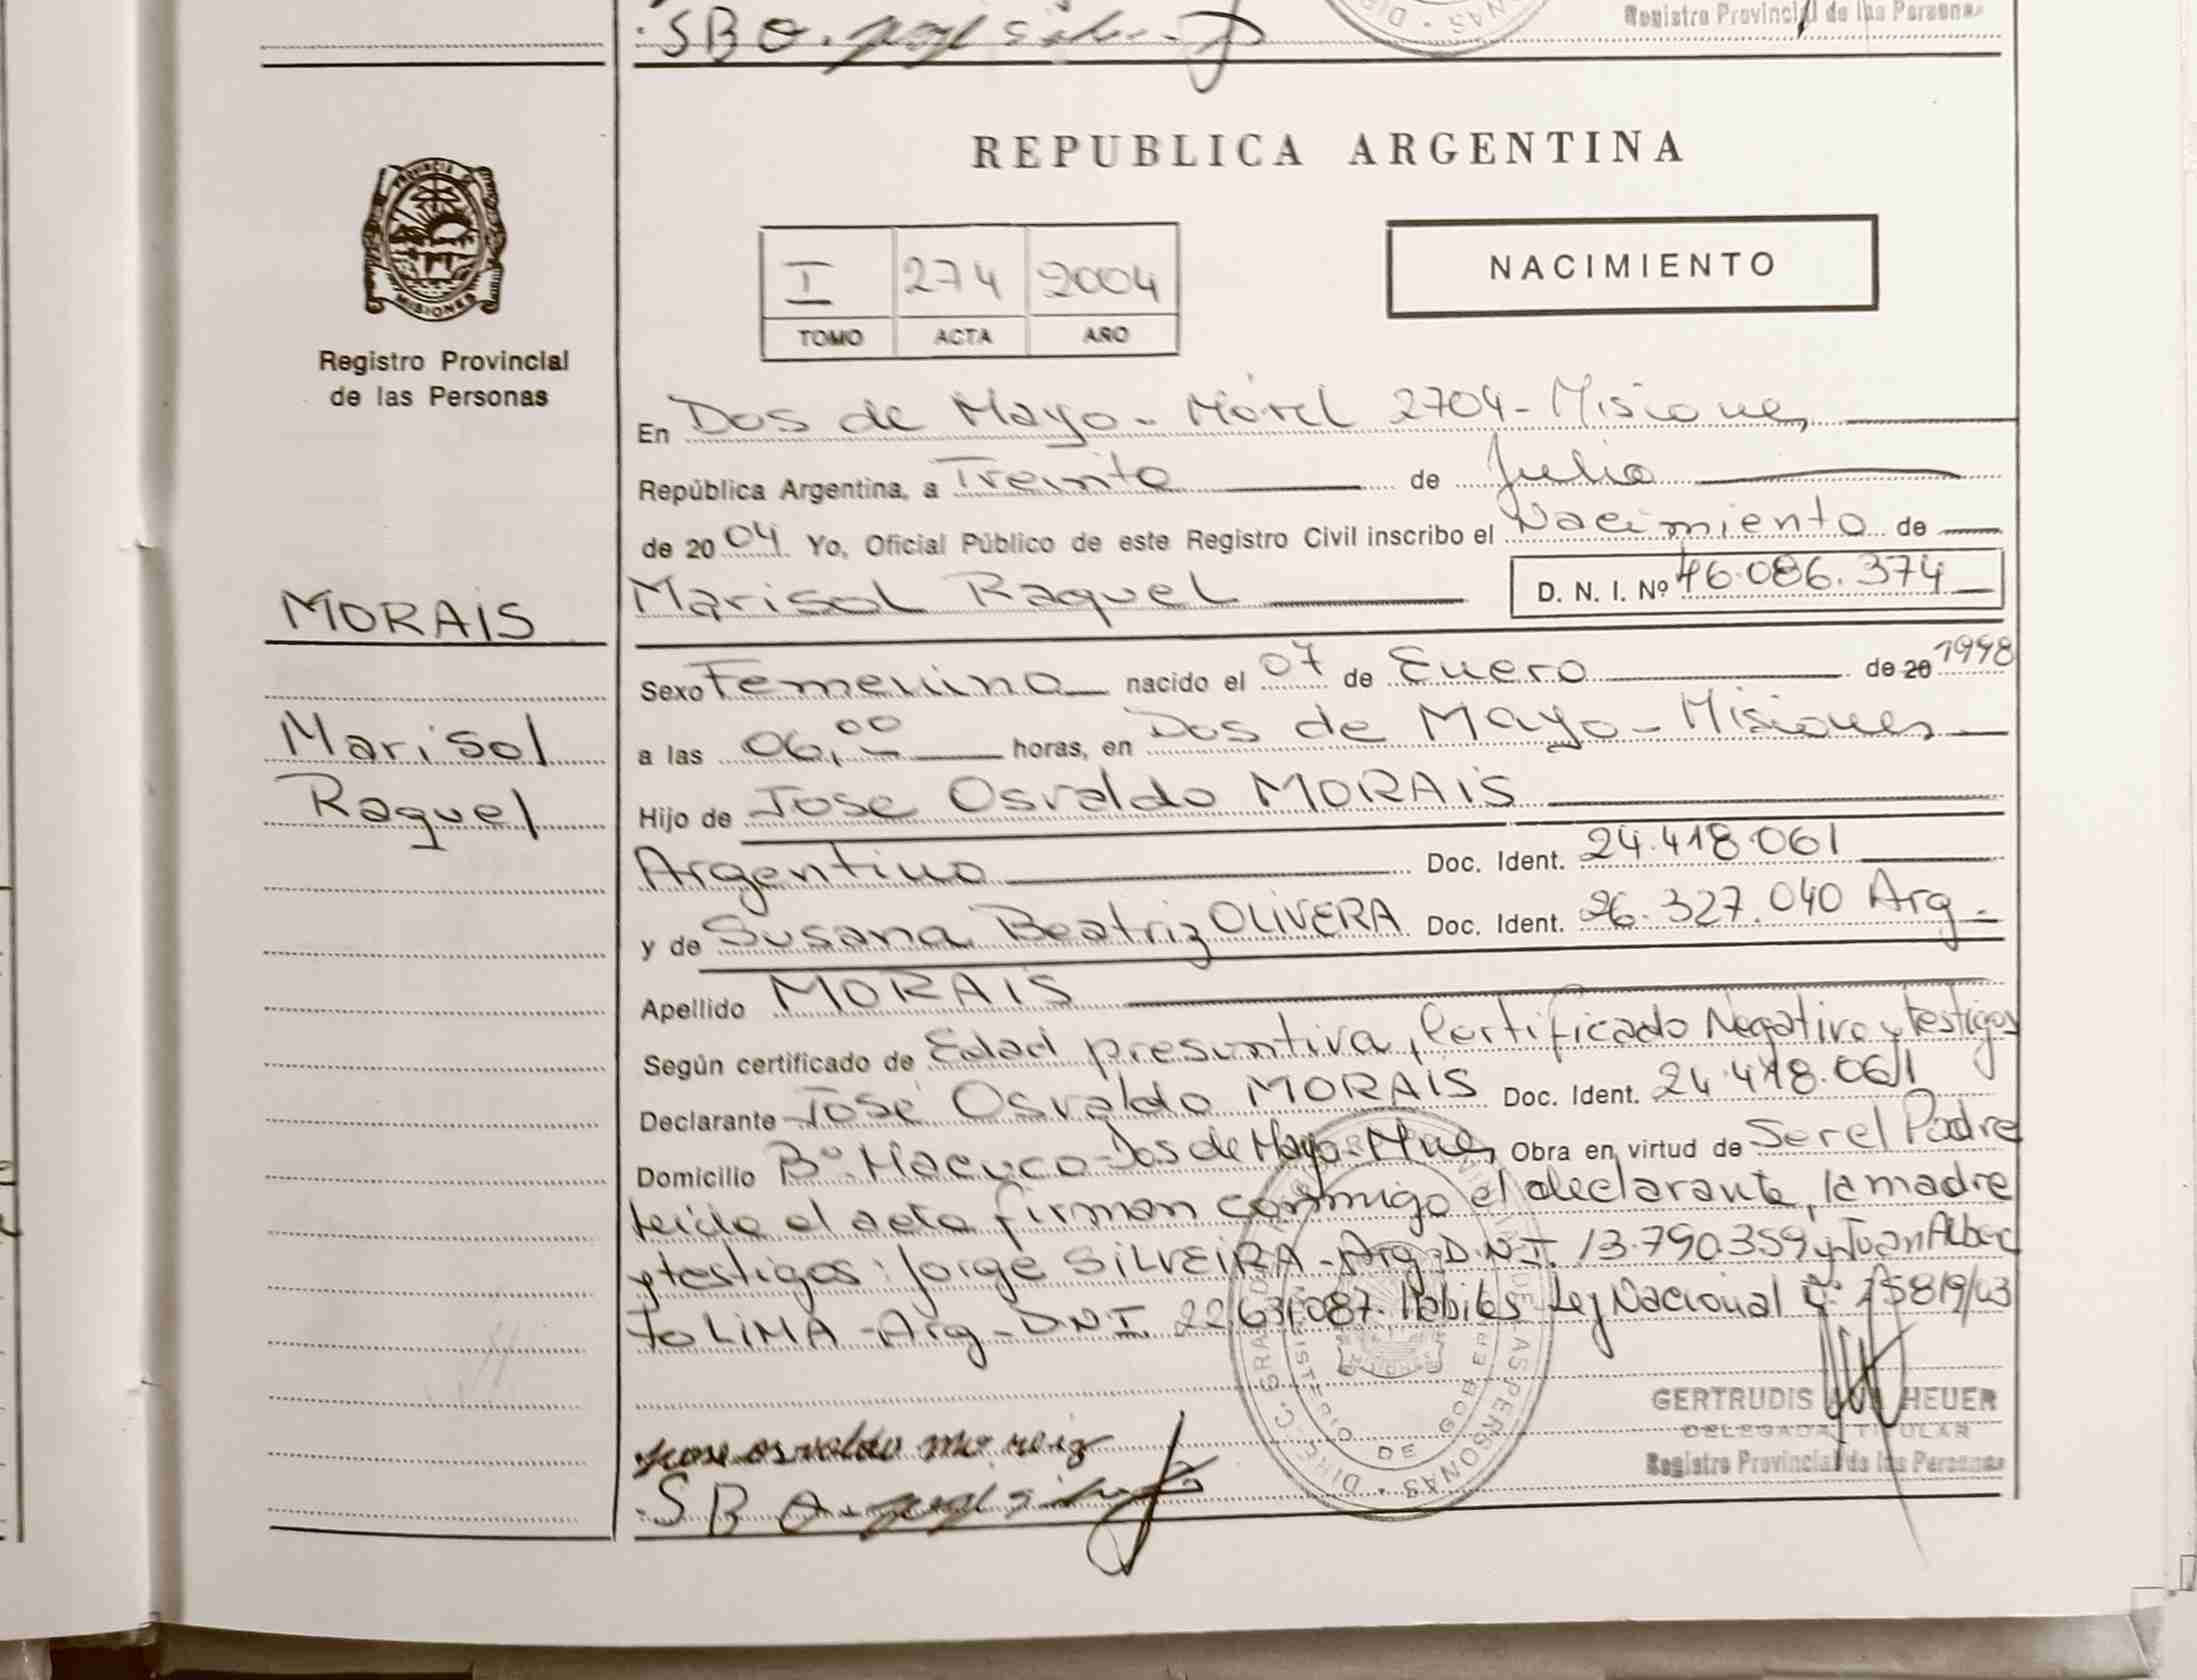 Registro Provincial de las Personas
S B O.
REPUBLICA ARGENTINA
PROVINCIA DE
MISIONES
Registro Provincial
de las Personas
I 274 2004
TOMO ACTA AÑO
NACIMIENTO
En Dos de Mayo - Móvil 2704 - Misiones
República Argentina, a Treinta de Julio
de 2004 Yo, Oficial Público de este Registro Civil inscribo el Nacimiento de
Marisol Raquel D. N. I. Nº 46.086.374
MORAIS
Marisol
Raquel
Sexo Femenino nacido el 07 de Enero de 20 1998
a las 06,00 horas, en Dos de Mayo - Misiones
Hijo de Jose Osvaldo MORAIS
Argentino Doc. Ident. 24.418.061
y de Susana Beatriz OLIVERA Doc. Ident. 26.327.040 Arg -
Apellido MORAIS
Según certificado de Edad presuntiva, Certificado Negativo y testigos
Declarante José Osvaldo MORAIS Doc. Ident. 24.418.061
Domicilio Bº. Macuco - Dos de Mayo - Mnes Obra en virtud de Ser el Padre
leido el acta firman conmigo el declarante, la madre
y testigos: Jorge SILVEIRA - Arg - D.N.I. 13.790.359 y Juan Alber
to LIMA - Arg - DNI. 22.631.087. Habiles Ley Nacional
GERTRUDIS ANA HEUER
DELEGADA TITULAR
Registro Provincial de las Personas
jose osvaldo moreiz
S B O